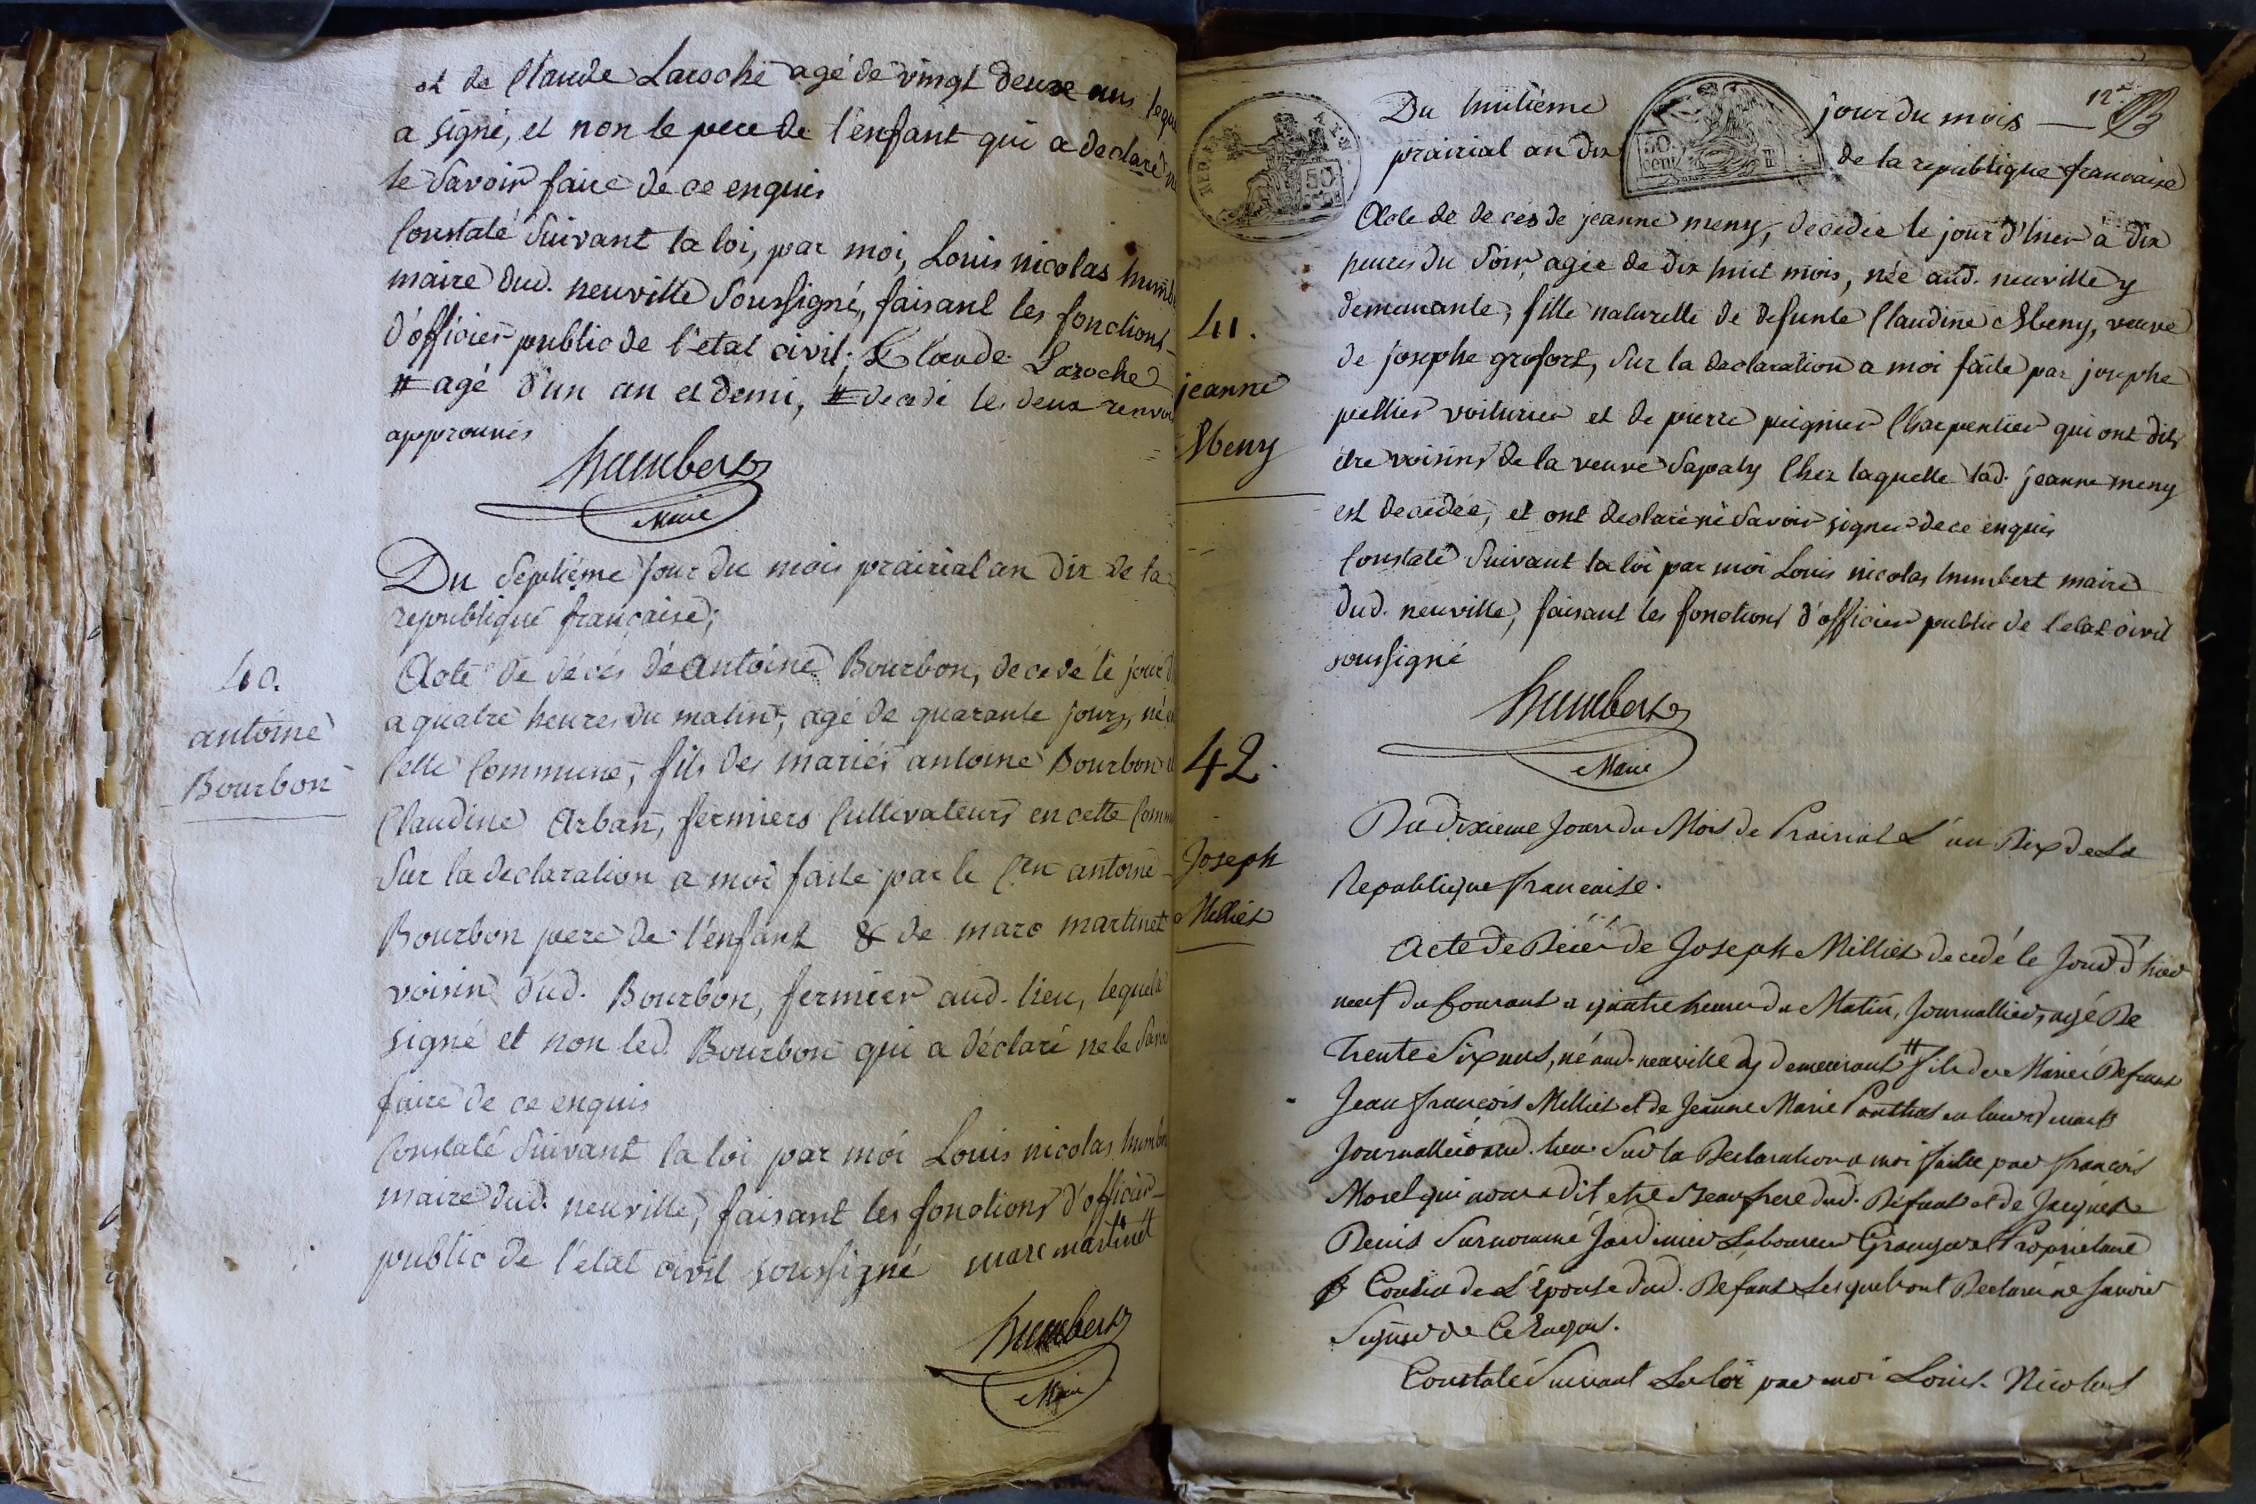 et de Claude Laroche agé de vingt deux ans lequ
a signé, et non le pere de l'enfant qui a declaré n
le savoir faire de ce enquis
Constaté suivant la loi, par moi, Louis nicolas humb
maire dud. neuville soussigné, faisant les fonctions
d'officier public de l'etat civil; Claude Laroche
# agé d'un an et demi, # decedé les deux renvoi
approuvés
humbert
Maire
Du septiéme jour du mois prairial an dix de la
republique française;
40.
antoine
Bourbon
Acte de décés de antoine Bourbon, decedé le jour d
a quatre heures du matin, agé de quarante jours, né e
Cette Commune, fils des mariés antoine Bourbon
Claudine Arban, fermiers Cultivateurs en cette Comm
Sur la declaration a moi faite par le Cen antoine
Bourbon pere de l'enfant & de marc martinet
voisin dud. Bourbon, fermier aud. lieu, lequel a
signé et non led. Bourbon qui a déclaré ne le Savo
faire de ce enquis
Constaté Suivant la loi par moi Louis nicolas humbe
maire dud. neuville, faisant les fonctions d'officier
public de l'etat civil soussigné marc martinet
humbert
Maire
12e
Du huitiéme jour du mois
prairial an dix de la republique francaise
50 cent
41.
jeanne
Meny
Acte de decés de jeanne meny, decedée le jour d'hier à dix
heures du soir, agée de dix huit mois, née aud. neuville y
demeurante, fille naturelle de defunte Claudine Meny, veuve
de josephe grofort, sur la declaration a moi faite par josephe
pellier voiturier et de pierre peignier Charpentier qui ont dits
être voisins de la veuve Sapaly Chez laquelle lad. jeanne meny
est decedée, et ont declaré ne savoir signer de ce enquis
Constaté Suivant la loi par moi Louis nicolas humbert maire
dud. neuville, faisant les fonctions d'officier public de l'etat civil
soussigné
humbert
Maire
42.
Joseph
Milliet
Du dixieme Jour du Mois de Prairial L'an Dix de La
Republique francaise.
Acte de Décés de Joseph Milliet decedé le Jour d'hier
neuf du Courant a quatre heures du Matin, Journallier, agé De
Trente Six ans, né aud. neuville y demeurant # fils des Mariés Defunt
Jean françois Milliet et de Jeanne Marie
Journallier aud. lieu Sur la Declaration a moi faitte par françois
Morel qui nous a dit etre Beaufrere dud. Defunt et de Jacques
Denis Surnommé Jardinier Laboureur Granger et Propriétaire
Cousin de L'épouse dud. Defunt Lesquels ont Declaré ne Savoir
Signer de Ce Enquis.
Constaté Suivant La loi par moi Louis Nicolas